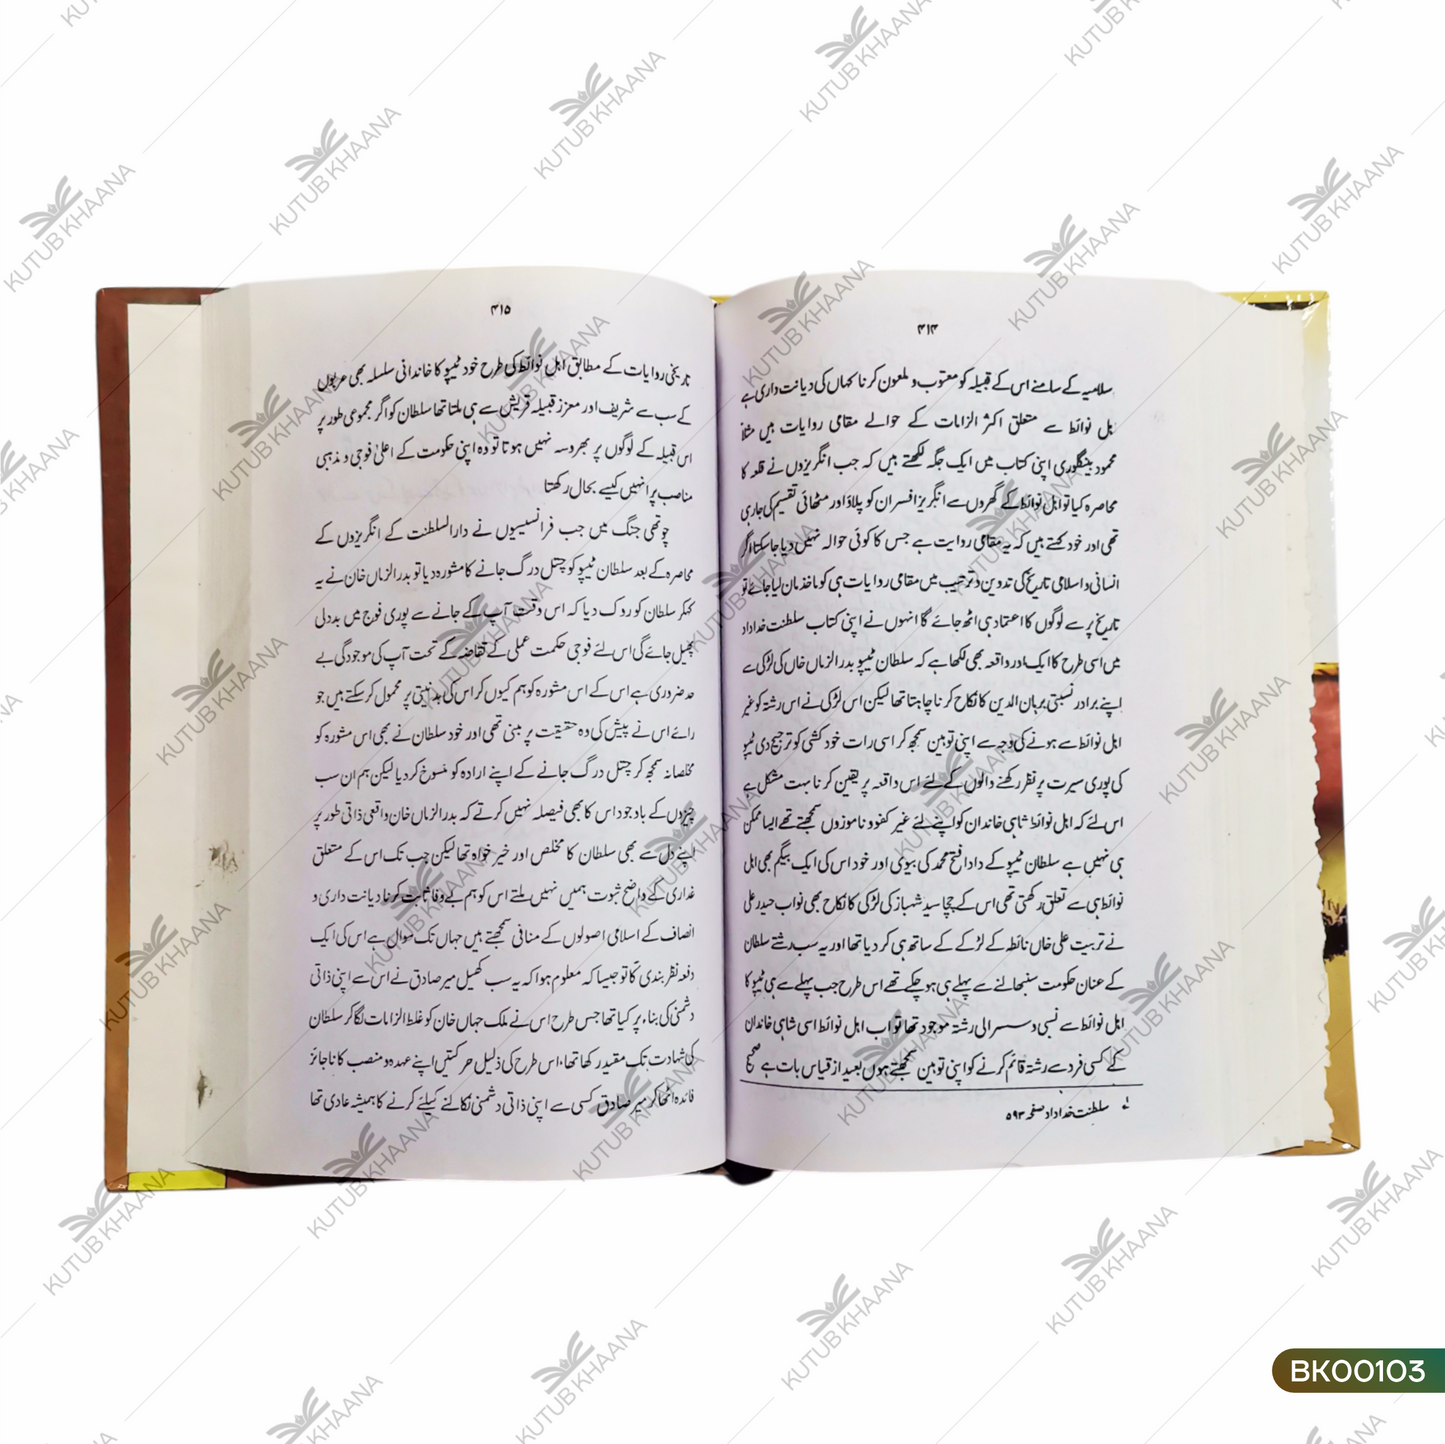 ۴۱۴
سلامیہ کے سامنے اس کے قبیلہ کو معتوب و ملعون کرنا کہاں کی دیانت داری ہے
ہل نوائط سے متعلق اکثر الزامات کے حوالے مقامی روایات ہیں مثلاً
محمود بینگلوری اپنی کتاب میں ایک جگہ لکھتے ہیں کہ جب انگریزوں نے قلعہ کا
محاصرہ کیا تو اہل نوائط کے گھروں سے انگریز افسران کو پلاؤ اور مٹھائی تقسیم کی جارہی
تھی اور خود کہتے ہیں کہ یہ مقامی روایت ہے جس کا کوئی حوالہ نہیں دیا جاسکتا اگر
انسانی و اسلامی تاریخ کی تدوین و ترتیب میں مقامی روایات ہی کو ماخذ مان لیا جائے تو
تاریخ پر سے لوگوں کا اعتماد ہی اٹھ جائے گا انہوں نے اپنی کتاب سلطنت خداداد
میں اسی طرح کا ایک اور واقعہ بھی لکھا ہے کہ سلطان ٹیپو بدر الزماں خاں کی لڑکی سے
اپنے برادر نسبتی برہان الدین کا نکاح کرنا چاہتا تھا لیکن اس لڑکی نے اس رشتہ کو غیر
اہل نوائط سے ہونے کی وجہ سے اپنی توہین سمجھ کر اسی رات خود کشی کو ترجیح دی ٹیپو
کی پوری سیرت پر نظر رکھنے والوں کے لئے اس واقعہ پر یقین کرنا بہت مشکل ہے
اس لئے کہ اہل نوائط شاہی خاندان کو اپنے لئے غیر کفو و ناموزوں سمجھتے تھے ایسا ممکن
ہی نہیں ہے سلطان ٹیپو کے دادا فتح محمد کی بیوی اور خود اس کی ایک بیگم بھی اہل
نوائط ہی سے تعلق رکھتی تھی اس کے چچا سید شہباز کی لڑکی کا نکاح بھی نواب حیدر علی
نے تربیت علی خاں نائطہ کے لڑکے کے ساتھ ہی کر دیا تھا اور یہ سب رشتے سلطان
کے عنان حکومت سنبھالنے سے پہلے ہی ہو چکے تھے اس طرح جب پہلے سے ہی ٹیپو کا
اہل نوائط سے نسبی و سسرالی رشتہ موجود تھا تو اب اہل نوائط اسی شاہی خاندان
کے کسی فرد سے رشتہ قائم کرنے کو اپنی توہین سمجھتے ہوں بعید از قیاس بات ہے صحیح
سلطنت خداداد صفحہ ۵۹۳
۴۱۵
تاریخی روایات کے مطابق اہل نوائط کی طرح خود ٹیپو کا خاندانی سلسلہ بھی عربوں
کے سب سے شریف اور معزز قبیلہ قریش سے ہی ملتا تھا سلطان کو اگر مجموعی طور پر
اس قبیلہ کے لوگوں پر بھروسہ نہیں ہوتا تو وہ اپنی حکومت کے اعلیٰ فوجی و مذہبی
مناصب پر انہیں کیسے بحال رکھتا
چوتھی جنگ میں جب فرانسیسیوں نے دارالسلطنت کے انگریزوں کے
محاصرہ کے بعد سلطان ٹیپو کو چتل درگ جانے کا مشورہ دیا تو بدر الزماں خان نے یہ
کہکر سلطان کو روک دیا کہ اس وقت آپ کے جانے سے پوری فوج میں بددلی
پھیل جائے گی اس لئے فوجی حکمت عملی کے تقاضہ کے تحت آپ کی موجودگی بے
حد ضروری ہے اس کے اس مشورہ کو ہم کیوں کر اس کی بد نیتی پر محمول کر سکتے ہیں جو
رائے اس نے پیش کی وہ حقیقت پر مبنی تھی اور خود سلطان نے بھی اس مشورہ کو
مخلصانہ سمجھ کر چتل درگ جانے کے اپنے ارادہ کو منسوخ کر دیا لیکن ہم ان سب
چیزوں کے باوجود اس کا بھی فیصلہ نہیں کرتے کہ بدر الزماں خان واقعی ذاتی طور پر
اپنے دل سے بھی سلطان کا مخلص اور خیر خواہ تھا لیکن جب تک اس کے متعلق
غداری کے واضح ثبوت ہمیں نہیں ملتے اس کو ہم بے وفا ثابت کرنا دیانت داری و
انصاف کے اسلامی اصولوں کے منافی سمجھتے ہیں جہاں تک سوال ہے اس کی ایک
دفعہ نظر بندی کا تو جیسا کہ معلوم ہوا کہ یہ سب کھیل میر صادق نے اس سے اپنی ذاتی
دشمنی کی بناء پر کیا تھا جس طرح اس نے ملک جہاں خان کو غلط الزامات لگا کر سلطان
کی شہادت تک مقید رکھا تھا، اس طرح کی ذلیل حرکتیں اپنے عہدہ و منصب کا ناجائز
فائدہ اٹھا کر میر صادق کسی سے اپنی ذاتی دشمنی نکالنے کیلئے کرنے کا ہمیشہ عادی تھا
KUTUB KHAANA
BK00103